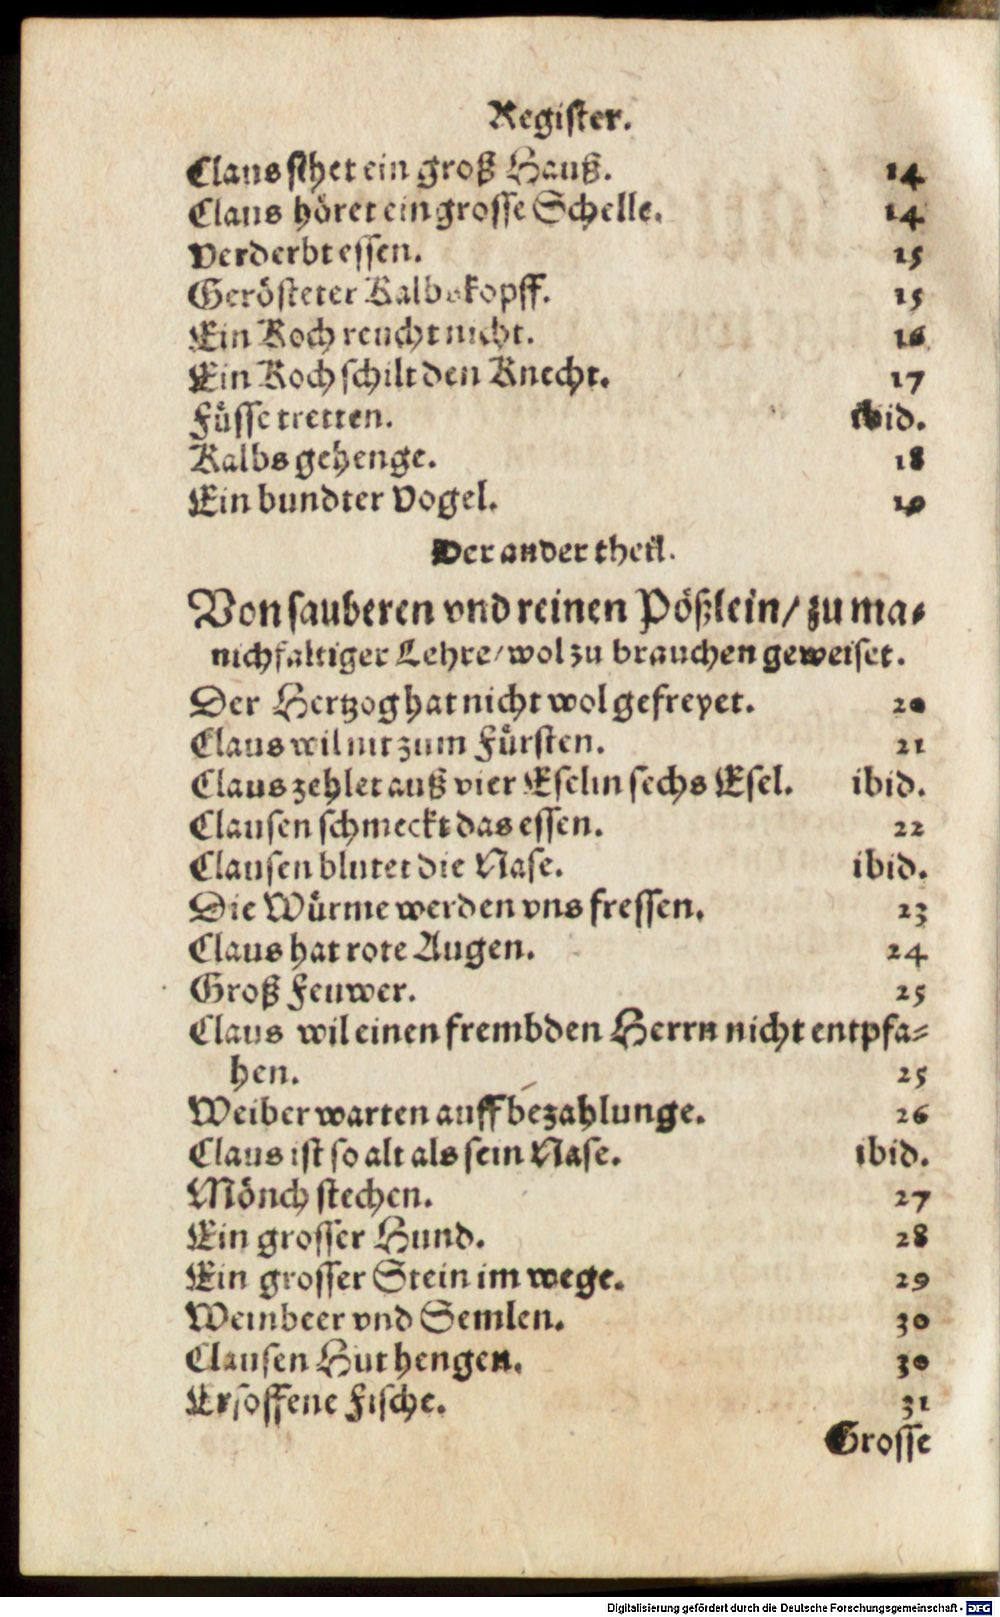 Register.
Claus sihet ein groß Hauß. 14
Claus höret ein grosse Schelle. 14
Verderbt essen. 15
Gerösteter Kalbskopff. 15
Ein Koch reucht nicht. 16
Ein Koch schilt den Knecht. 17
Füsse tretten. ibid.
Kalbs gehenge. 18
Ein bundter Vogel. 19
Der ander theil.
Von sauberen vnd reinen Pößlein/ zu ma⸗
nichfaltiger Lehre/ wol zu brauchen geweiset.
Der Hertzog hat nicht wol gefreyet. 20
Claus wil nit zum Fürsten. 21
Claus zehlet auß vier Eseln sechs Esel. ibid.
Clausen schmeckt das essen. 22
Clausen blutet die Nase. ibid.
Die Würme werden vns fressen. 23
Claus hat rote Augen. 24
Groß Feuwer. 25
Claus wil einen frembden Herrn nicht entpfa⸗
hen. 25
Weiber warten auff bezahlunge. 26
Claus ist so alt als sein Nase. ibid.
Mönch stechen. 27
Ein grosser Hund. 28
Ein grosser Stein im wege. 29
Weinbeer vnd Semlen. 30
Clausen Hut hengen. 30
Ersoffene Fische. 31
Grosse
Digitalisierung gefördert durch die Deutsche Forschungsgemeinschaft - DFG